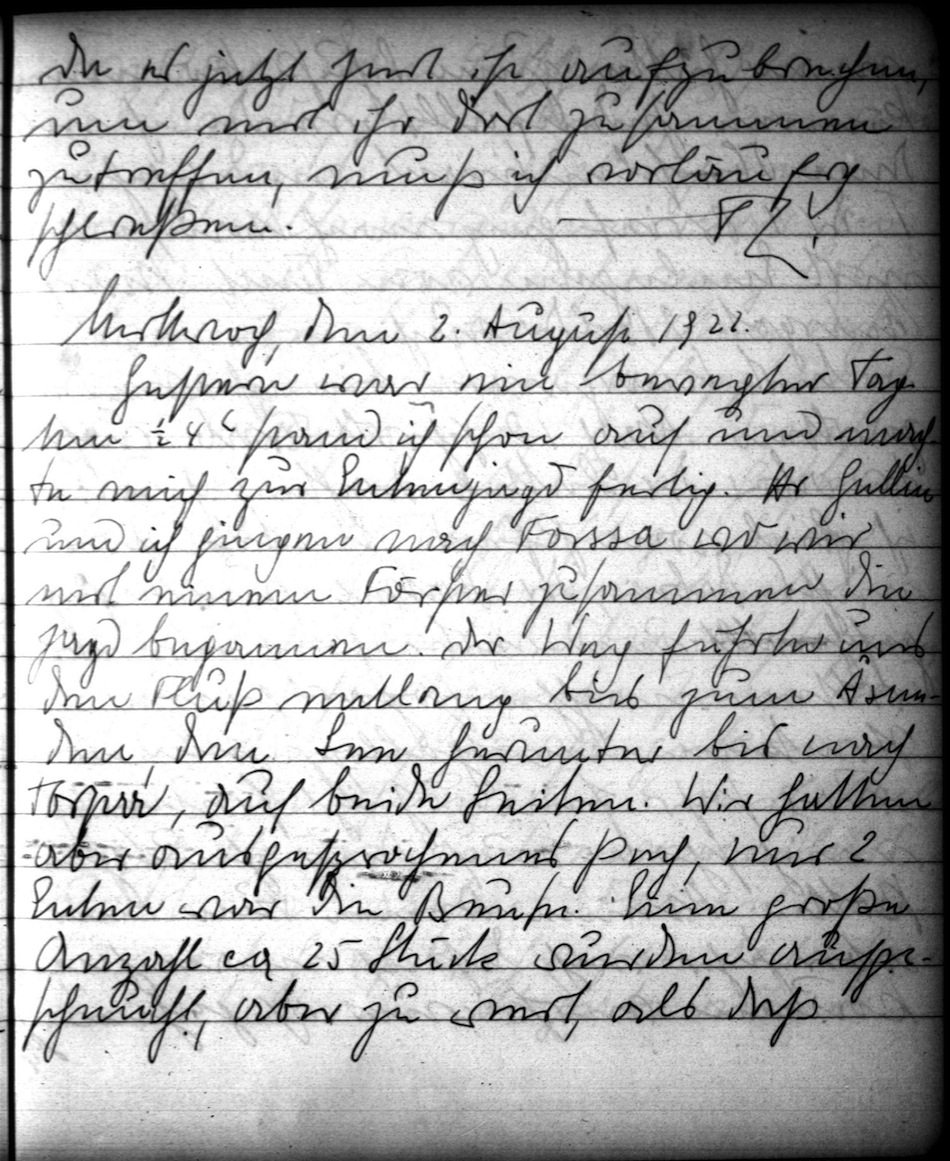 da es jetzt Zeit ist aufzubrechen,
um mit ihr dort zusammen
zutreffen, muß ich vorläufig
schließen.
Mittwoch, den 2. August 1922.
Gestern war ein bewegter Tag.
Um ½ 4 stand ich schon auf und mach
te mich zur Entenjagd fertig. Hr
und ich gingen nach Forssa wo wir
mit einem Förster zusammen die
Jagd begannen. Der Weg führte uns
den Fluß entlang bis zum Åsun-
den, den See herunter bis nach
Torpa, auf beide Seiten. Wir hatten
aber ausgesprochenes Pech, nur 2
Enten war die Beute. Eine große
Anzahl ca 25 Stück wurden aufge-
scheucht, aber zu weit, als daß